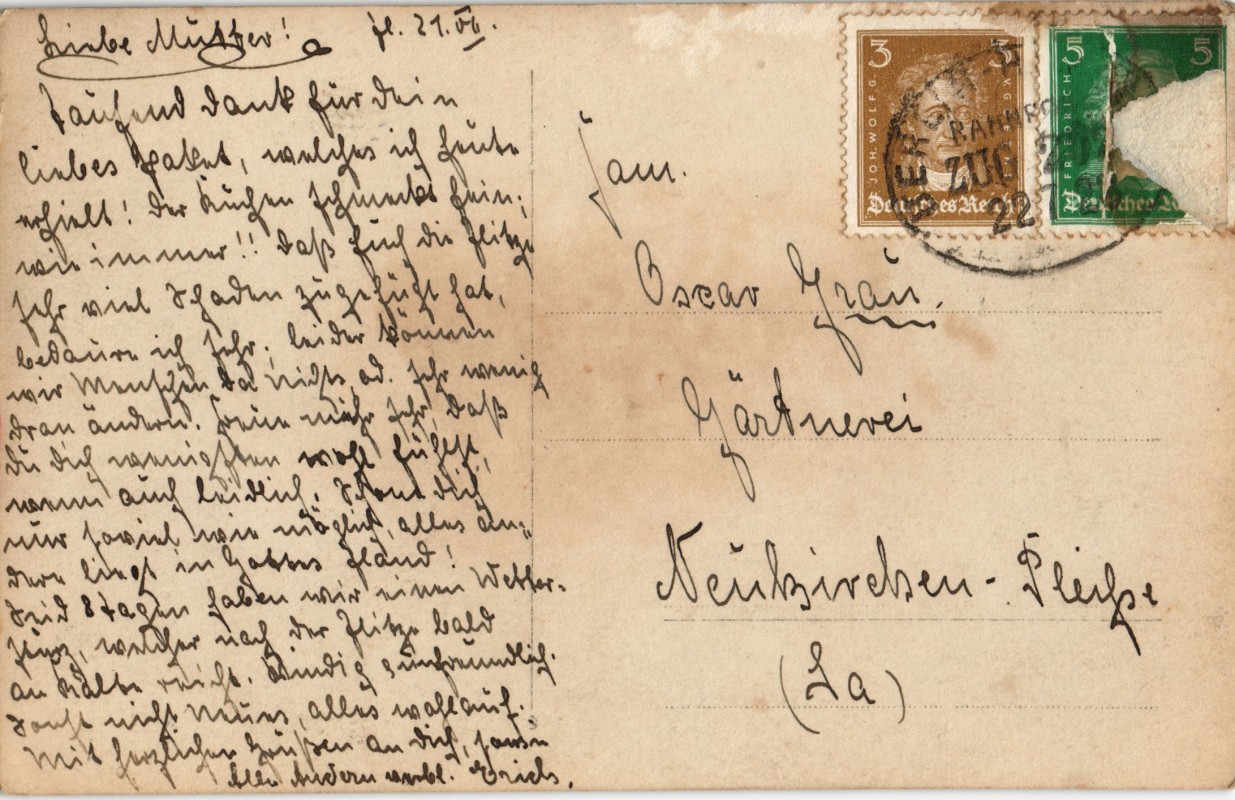 Liebe Mutter! fl. 21.VII.
Tausend Dank für dein
liebes Paket, welches ich heute
erhielt! Der Kuchen schmeckt fein,
wie immer!! Daß Euch die Hitze
sehr viel Schaden zugefügt hat,
bedaure ich sehr, leider können
wir Menschen da nichts od. sehr wenig
dran ändern. Freue mich sehr, daß
du dich wenigsten wohl fühlst,
wenn auch leidlich. Schone dich
nur soviel wie möglich, alles an-
dere liegt in Gottes Hand!
Seid 8 Tagen haben wir einen Wetter-
sturz, welcher nach der Hitze bald
an Kälte reicht. Windig & unfreundlich.
Sonst nicht Neues, alles wohlauf.
Mit herzlichen Grüßen an dich, sowie
Alle Andern verbl. Erich.
3 3
JOH. WOLFG.
Deutsches Reich
5 5
FRIEDRICH
Deutsches R
BAHNPO
ZUG
22
Fam.
Oscar Grau.
Gärtnerei
Neukirchen-Pleiße
(Sa)